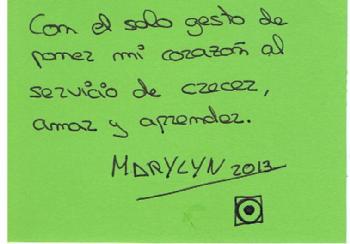 Con el solo gesto de
poner mi corazón al
servicio de crecer,
amar y aprender.
MARYLYN 2013